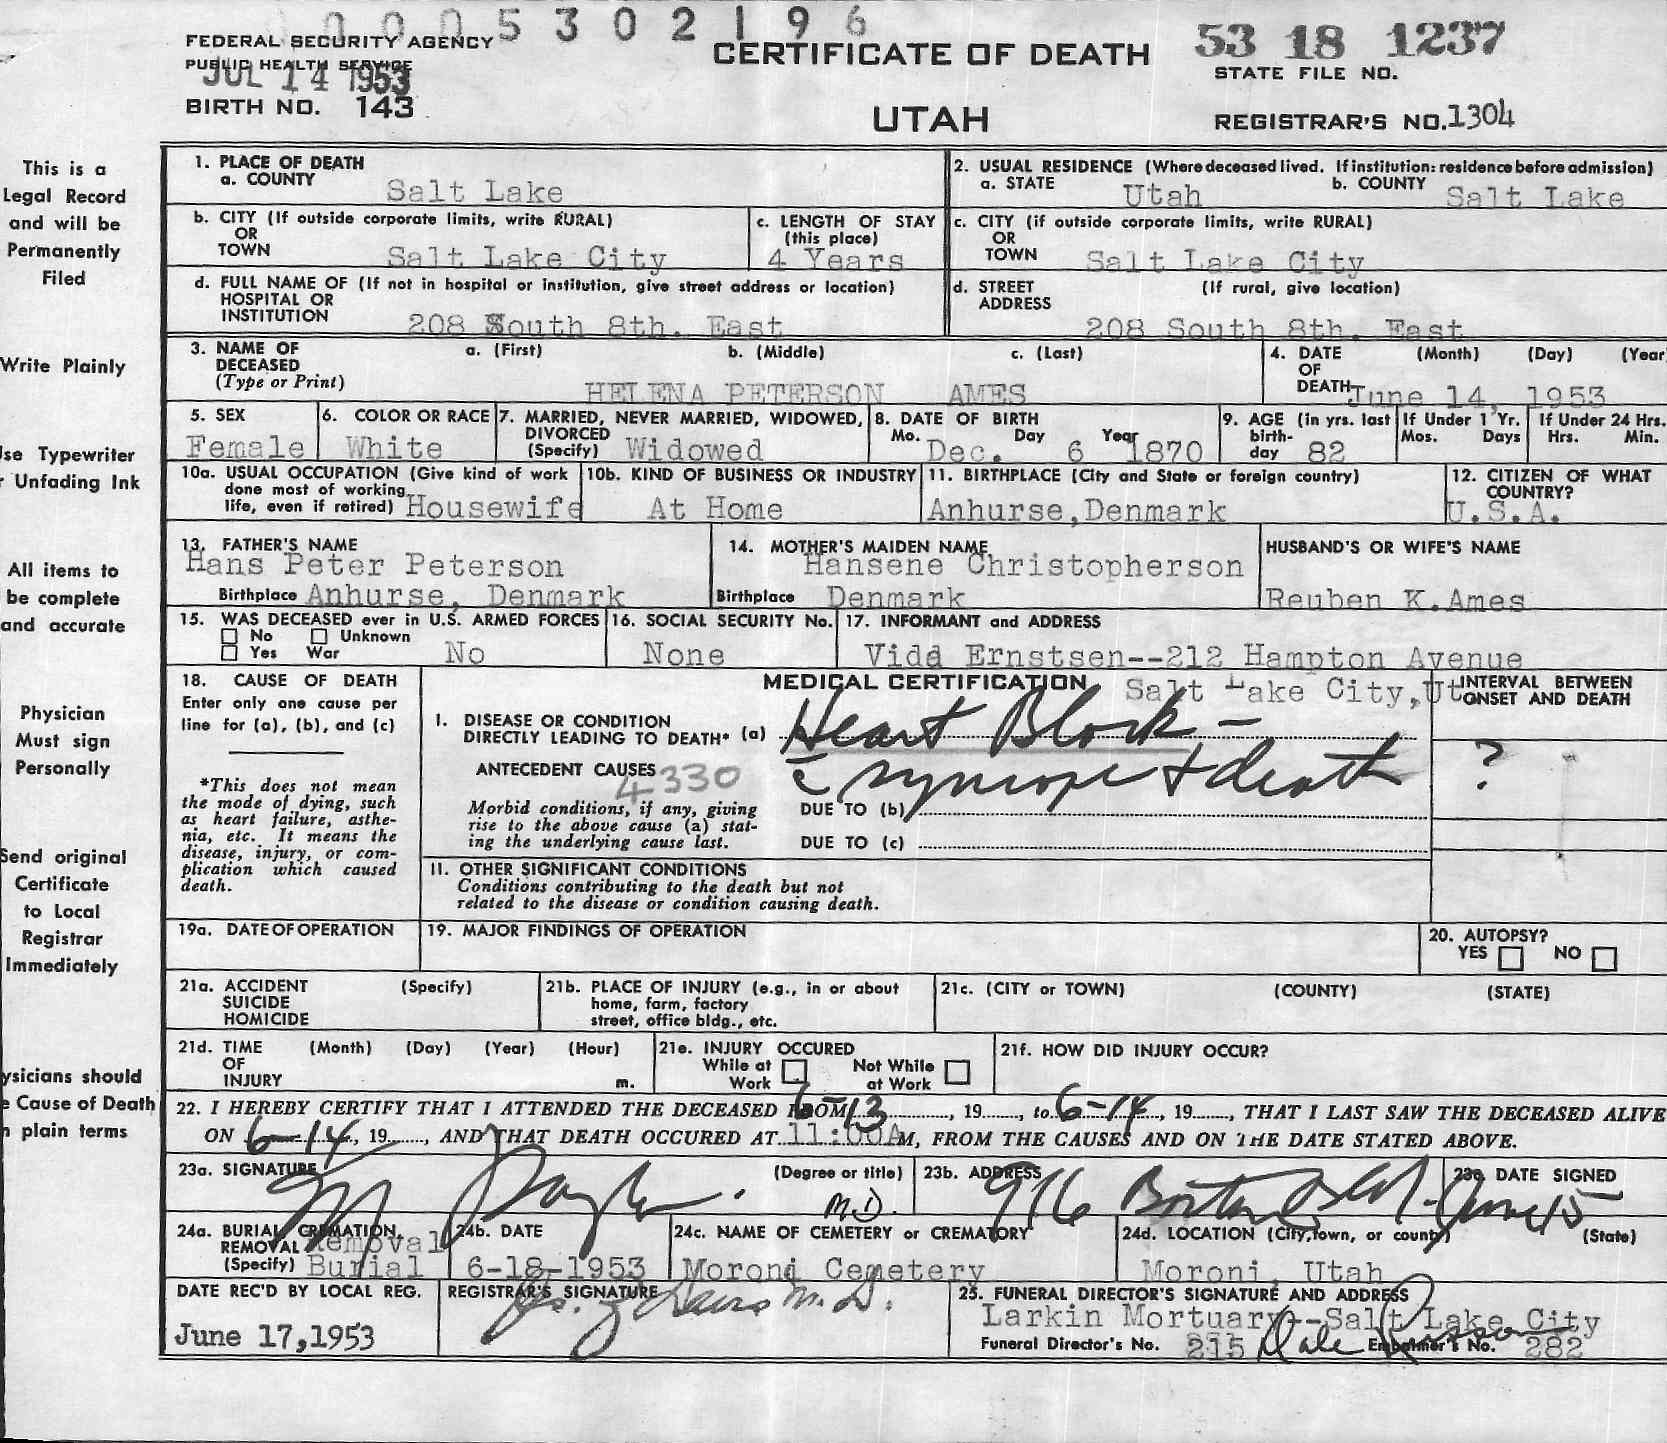 0005302196
FEDERAL SECURITY AGENCY
PUBLIC HEALTH SERVICE
JUL 14 1953
BIRTH NO. 143
CERTIFICATE OF DEATH
UTAH
53 18 1237
STATE FILE NO.
REGISTRAR'S NO. 1304
This is a
Legal Record
and will be
Permanently
Filed
Write Plainly
se Typewriter
r Unfading Ink
All items to
be complete
and accurate
Physician
Must sign
Personally
Send original
Certificate
to Local
Registrar
Immediately
ysicians should
e Cause of Death
n plain terms
1. PLACE OF DEATH
a. COUNTY Salt Lake
2. USUAL RESIDENCE (Where deceased lived. If institution: residence before admission)
a. STATE Utah b. COUNTY Salt Lake
b. CITY (If outside corporate limits, write RURAL)
OR
TOWN Salt Lake City
c. LENGTH OF STAY
(this place)
4 Years
c. CITY (if outside corporate limits, write RURAL)
OR
TOWN Salt Lake City
d. FULL NAME OF (If not in hospital or institution, give street address or location)
HOSPITAL OR
INSTITUTION 208 South 8th. East
d. STREET (If rural, give location)
ADDRESS
208 South 8th. East
3. NAME OF a. (First) b. (Middle) c. (Last)
DECEASED
(Type or Print) HELENA PETERSON AMES
4. DATE (Month) (Day) (Year
OF
DEATH June 14, 1953
5. SEX
Female
6. COLOR OR RACE
White
7. MARRIED, NEVER MARRIED, WIDOWED,
DIVORCED
(Specify) Widowed
8. DATE OF BIRTH
Mo. Day Year
Dec. 6 1870
9. AGE (in yrs. last
birth-
day 82
If Under 1 Yr.
Mos. Days
If Under 24 Hrs.
Hrs. Min.
10a. USUAL OCCUPATION (Give kind of work
done most of working
life, even if retired) Housewife
10b. KIND OF BUSINESS OR INDUSTRY
At Home
11. BIRTHPLACE (City and State or foreign country)
Anhurse,Denmark
12. CITIZEN OF WHAT
COUNTRY?
U.S.A.
13. FATHER'S NAME
Hans Peter Peterson
Birthplace Anhurse, Denmark
14. MOTHER'S MAIDEN NAME
Hansene Christopherson
Birthplace Denmark
HUSBAND'S OR WIFE'S NAME
Reuben K.Ames
15. WAS DECEASED ever in U.S. ARMED FORCES
No Unknown
Yes War No
16. SOCIAL SECURITY No.
None
17. INFORMANT and ADDRESS
Vidd Ernstsen--212 Hampton Avenue
Salt Lake City,Ut
18. CAUSE OF DEATH
Enter only one cause per
line for (a), (b), and (c)
*This does not mean
the mode of dying, such
as heart failure, asthe-
nia, etc. It means the
disease, injury, or com-
plication which caused
death.
MEDICAL CERTIFICATION
INTERVAL BETWEEN
ONSET AND DEATH
I. DISEASE OR CONDITION
DIRECTLY LEADING TO DEATH* (a) Heart Block -
c̄ syncope + death
?
ANTECEDENT CAUSES
4330
Morbid conditions, if any, giving
rise to the above cause (a) stat-
ing the underlying cause last.
DUE TO (b)
DUE TO (c)
II. OTHER SIGNIFICANT CONDITIONS
Conditions contributing to the death but not
related to the disease or condition causing death.
19a. DATE OF OPERATION
19. MAJOR FINDINGS OF OPERATION
20. AUTOPSY?
YES NO
21a. ACCIDENT (Specify)
SUICIDE
HOMICIDE
21b. PLACE OF INJURY (e.g., in or about
home, farm, factory
street, office bldg., etc.
21c. (CITY or TOWN) (COUNTY) (STATE)
21d. TIME (Month) (Day) (Year) (Hour)
OF
INJURY m.
21e. INJURY OCCURED
While at Not While
Work at Work
21f. HOW DID INJURY OCCUR?
22. I HEREBY CERTIFY THAT I ATTENDED THE DECEASED FROM 6-13, 19......, to 6-14, 19......, THAT I LAST SAW THE DECEASED ALIVE
ON 6-14, 19......, AND THAT DEATH OCCURED AT 11:00AM, FROM THE CAUSES AND ON THE DATE STATED ABOVE.
23a. SIGNATURE (Degree or title)
M.D.
23b. ADDRESS
916 Boston Bld.
23c. DATE SIGNED
June 15
24a. BURIAL, CREMATION,
REMOVAL Removal
(Specify) Burial
24b. DATE
6-18-1953
24c. NAME OF CEMETERY or CREMATORY
Moroni Cemetery
24d. LOCATION (City, town, or county) (State)
Moroni, Utah
DATE REC'D BY LOCAL REG.
June 17,1953
REGISTRAR'S SIGNATURE
M.D.
25. FUNERAL DIRECTOR'S SIGNATURE AND ADDRESS
Larkin Mortuary--Salt Lake City
Funeral Director's No. 215 Dale Embalmer's No. 282